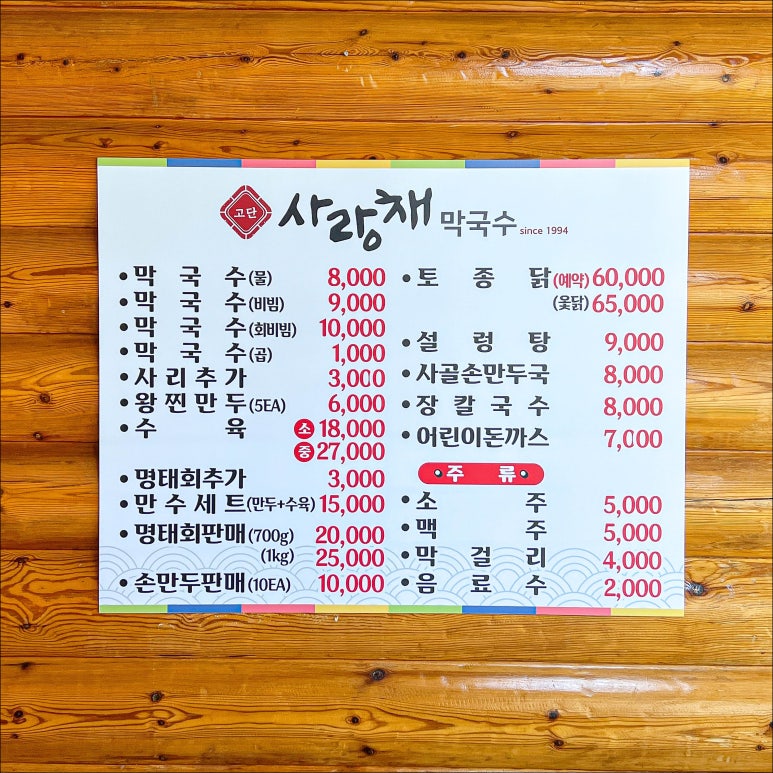 고단 사랑채 막국수 since 1994
• 막국수(물) 8,000
• 막국수(비빔) 9,000
• 막국수(회비빔) 10,000
• 막국수(곱) 1,000
• 사리추가 3,000
• 왕찐만두(5EA) 6,000
• 수육 소 18,000
중 27,000
• 명태회추가 3,000
• 만수세트(만두+수육) 15,000
• 명태회판매(700g) 20,000
(1kg) 25,000
• 손만두판매(10EA) 10,000
• 토종닭(예약) 60,000
(옻닭) 65,000
• 설렁탕 9,000
• 사골손만두국 8,000
• 장칼국수 8,000
• 어린이돈까스 7,000
주류
• 소주 5,000
• 맥주 5,000
• 막걸리 4,000
• 음료수 2,000